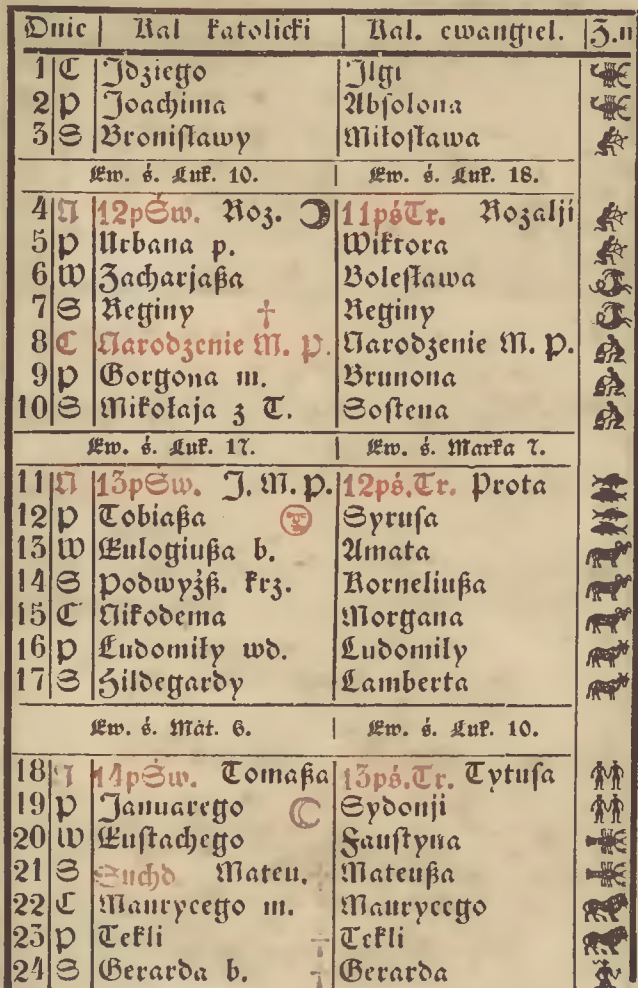 Dnie | Kal katolicki | Kal. ewangiel. | Z.n
1 C Idziego Ilgi
2 P Joachima Absolona
3 S Bronisławy Miłosława
Ew. ś. Łuk. 10. | Ew. ś. Łuk. 18.
4 N 12pŚw. Roz. 11pśTr. Rozalji
5 P Urbana p. Wiktora
6 W Zacharjaßa Bolesława
7 S Reginy † Reginy
8 C Narodzenie M. P. Narodzenie M. P.
9 P Gorgona m. Brunona
10 S Mikołaja z T. Sostena
Ew. ś. Łuk. 17. | Ew. ś. Marka 7.
11 N 13pŚw. J. M. P. 12pś.Tr. Prota
12 P Tobiaßa Syrusa
13 W Eulogiußa b. Amata
14 S Podwyżß. krz. Korneliußa
15 C Nikodema Morgana
16 P Ludomiły wd. Ludomiły
17 S Hildegardy Lamberta
Ew. ś. Mát. 6. | Ew. ś. Łuk. 10.
18 N 14pŚw. Tomaßa 13pś.Tr. Tytusa
19 P Januarego Sydonji
20 W Eustachego Faustyna
21 S Suchd Mateu. † Mateußa
22 C Maurycego m. Maurycego
23 P Tekli † Tekli
24 S Gerarda b. † Gerarda